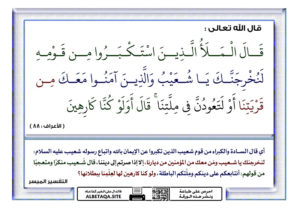 قال الله تعالى :
قَالَ الْمَلَأُ الَّذِينَ اسْتَكْبَرُوا مِن قَوْمِهِ
لَنُخْرِجَنَّكَ يَا شُعَيْبُ وَالَّذِينَ آمَنُوا مَعَكَ مِن
قَرْيَتِنَا أَوْ لَتَعُودُنَّ فِي مِلَّتِنَا ۚ قَالَ أَوَلَوْ كُنَّا كَارِهِينَ
( الأعراف : ٨٨ )
أي قال السادة والكبراء من قوم شعيب الذين تكبروا عن الإيمان بالله واتباع رسوله شعيب عليه السلام:
لنخرجنك يا شعيب ومن معك من المؤمنين من ديارنا، إلا إذا صرتم إلى ديننا، قال شعيب منكرًا ومتعجبًا
من قولهم: أنتابعكم على دينكم وملّتكم الباطلة، ولو كنا كارهين لها لعلمنا ببطلانها؟
التفسير الميسر
احرص على طباعة
ونشر هذه الورقة
ALBETAQA.SITE